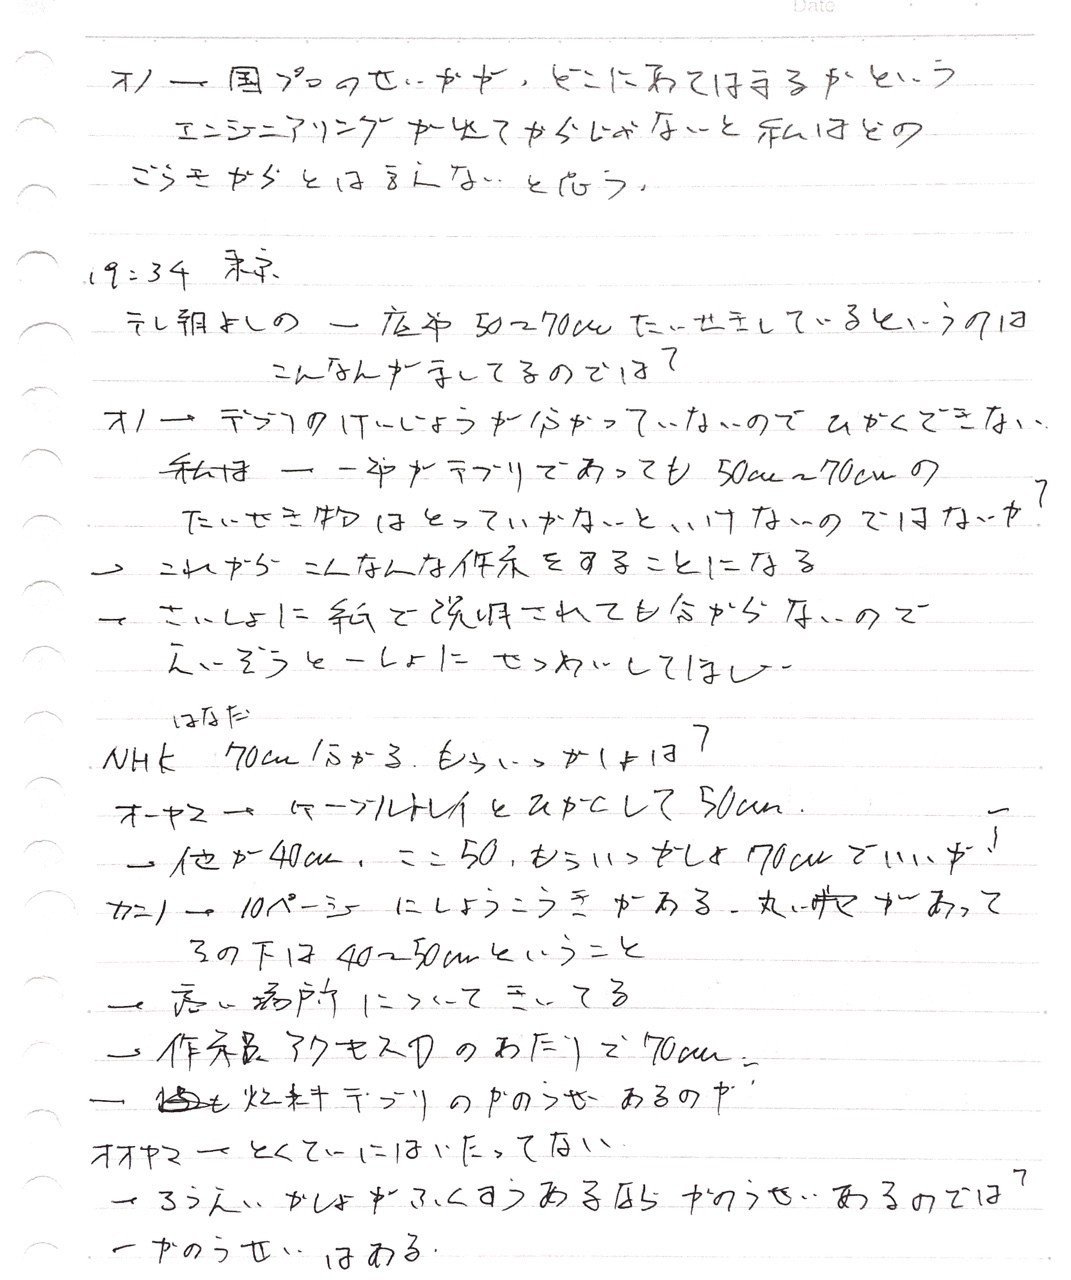 Date
オノ → 国プロのせいかが、どこにあてはまるかという
エンジニアリングが出てからじゃないと私はどの
ごうきからとは言えないと思う、
19:34 東京
テレ朝よしの → 広や 50〜70cm たいせきしているというのは
こんなんがましてるのでは?
オノ → デブリのけいじょうが分かっていないのでひかくできない、
私は → 一部がデブリであっても 50cm〜70cmの
たいせき物はとっていかないといけないのではないか?
→ これからこんなんな作業をすることになる
→ さいしょに紙で説明されても分からないので
えいぞうと一しょにせつめいしてほしい
はなだ
NHK 70cm分かる、もういっかしょは?
オーヤマ → ケーブルトレイとひかくして50cm.
→ 他が40cm、ここ50、もういっかしょ70cmでいいか?
カニノ → 10ページにしょうこうきがある、丸いがあって
その下は40〜50cmということ
→ 高い場所についてきいてる
→ 作業員アクセス口のあたりで70cm
→ 燃料デブリのかのうせいあるのか
オオヤマ → とくていにはいたってない
→ ろうえいかしょがふくすうあるならかのうせいあるのでは?
→ かのうせいはある.